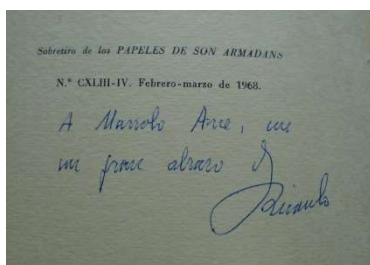 Sobretiro de los PAPELES DE SON ARMADANS
N.º CXLIII-IV. Febrero-marzo de 1968.
A Manolo Arce, con
un grande abrazo de
Ricardo